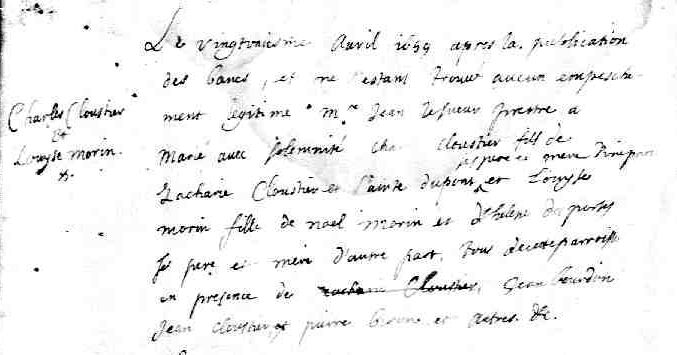 Charles Cloustier
et
Louyse morin.
Le vingtvniesme Avril 1659 apres la publication
des bancs, et ne s'estant trouvé aucun empesche
ment legitime Mre Jean le sueur prestre a
Marié avec solemnité Char Cloustier fils de
ses pere et mere d'une part
Zacharie Cloustier et Sainte dupont et Louyse
morin fille de noel morin et d'helene deportes
ses pere et mere d'autre part, tous de cette parroisse
en presence de zacharie Cloustier, Jean bourdon
Jean Cloustier, et pierre et autres. &c.